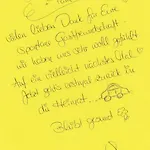 vielen lieben Dank für Eure
spontane Gastfreundschaft.
Wir haben uns sehr wohl gefühlt
Auf ein vielleicht nächstes Mal
Jetzt geht's erstmal zurück in
die Steiermark...
Bleibt gesund